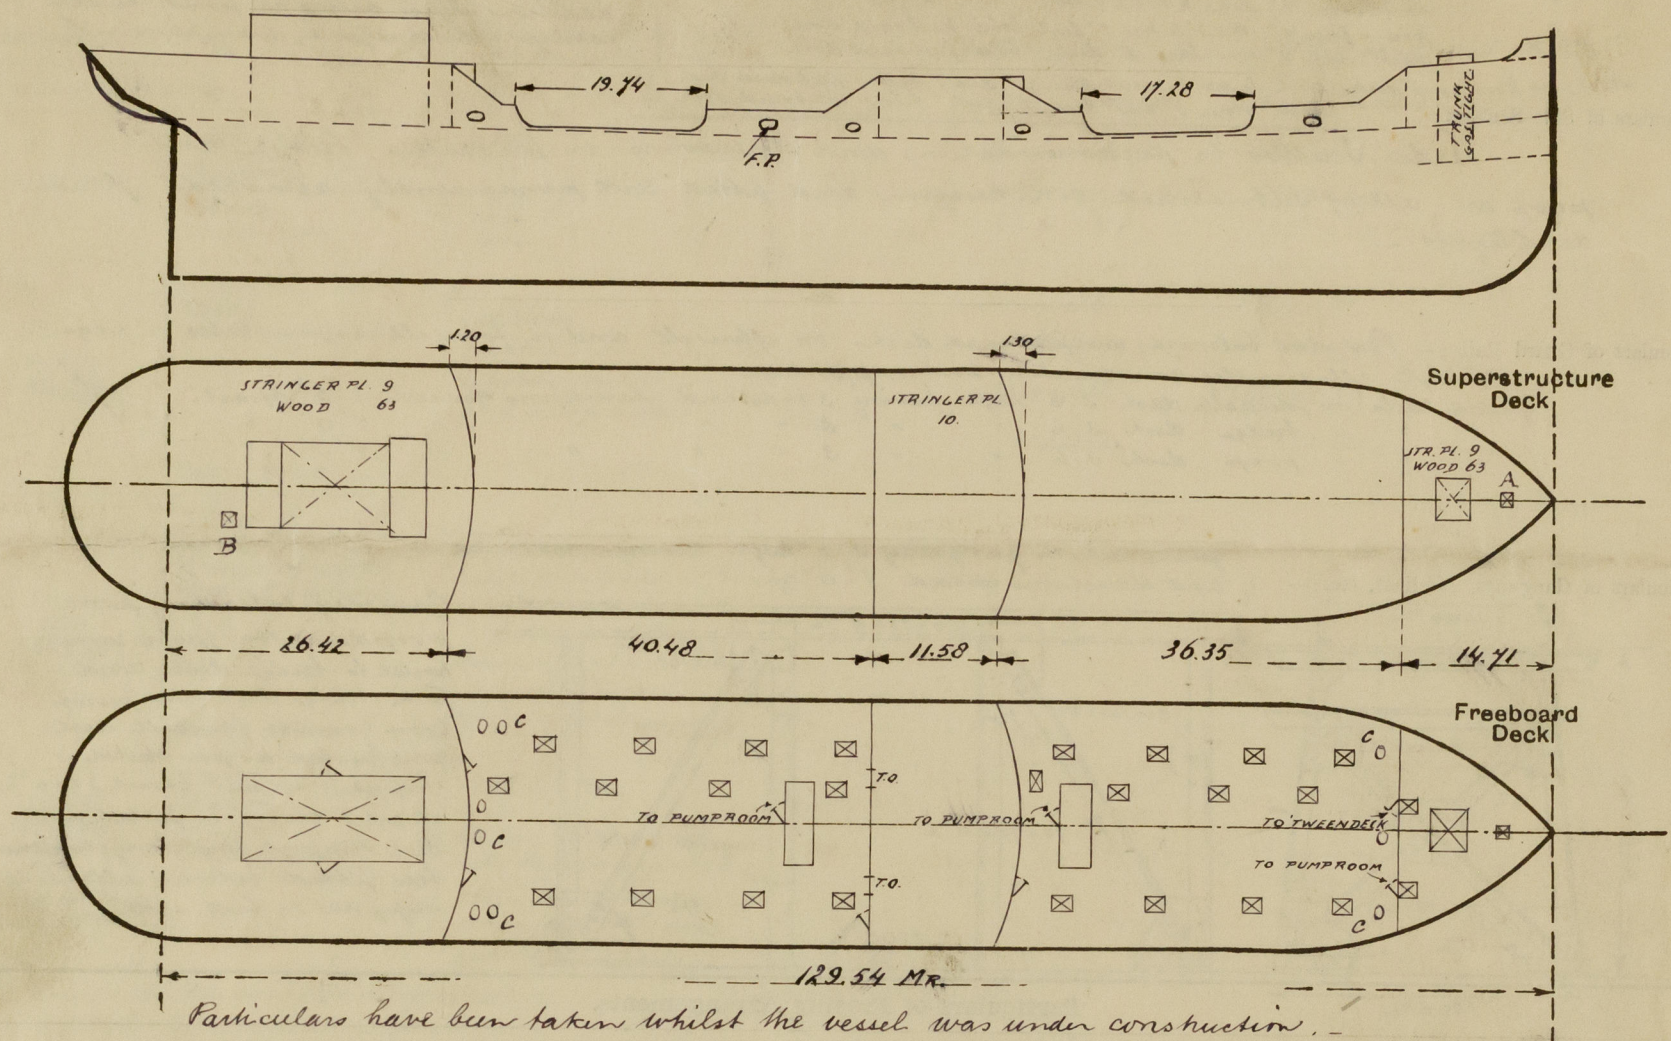 19.74
17.28
F.P.
TRUNK
GASTIGHT
1.20
1.30
STRINGER PL. 9
WOOD 63
STRINGER PL
10.
Superstructure
Deck
STR. PL. 9
WOOD 63
A
B
26.42
40.48
11.58
36.35
14.71
Freeboard
Deck
C
C
T.O.
TO PUMPROOM
TO PUMPROOM
TO TWEENDECK
C
TO PUMPROOM
T.O.
C
C
129.54 MR.
Particulars have been taken whilst the vessel was under construction.